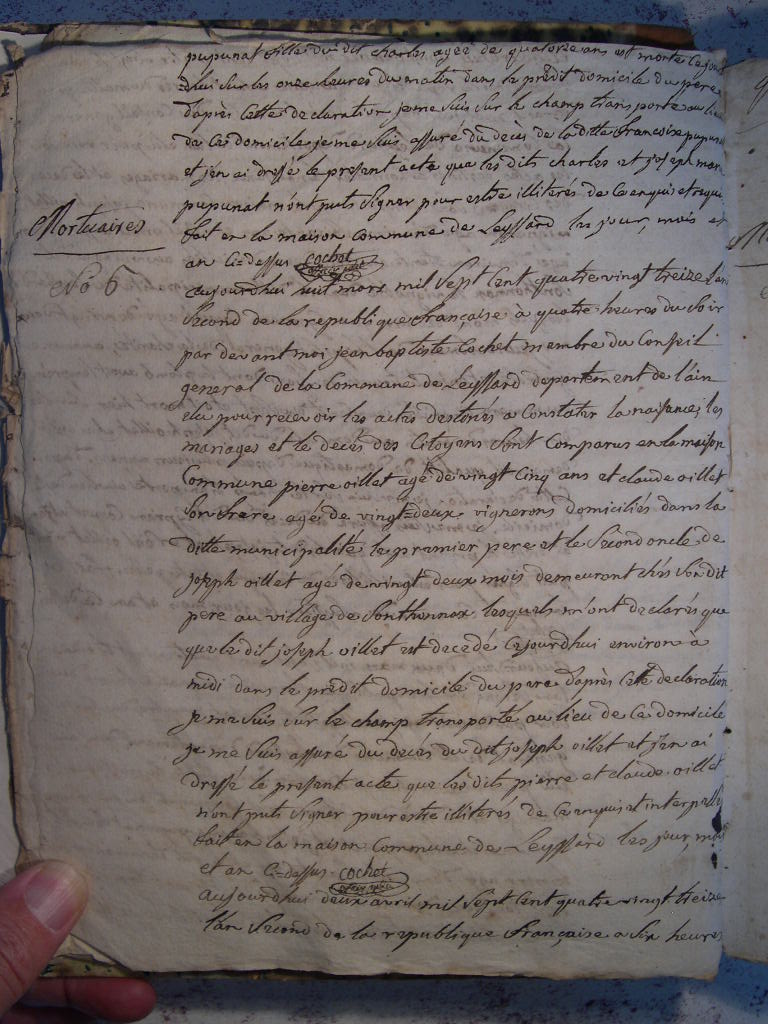 pupunat fille du dit charles agée de quatorze ans est morte cejour
dhui sur les onze heures du matin dans le predit domicile du pere
daprès cette declaration je me suis sur le champ transporté au lieu
de ce domicile je me suis assuré du decès de la ditte francoise pupunat
et j'en ai dressé le present acte que les dits charles et joseph marie
pupunat n'ont puts signer pour estre illiterés de ce enquis et requis
Mortuaires
fait en la maison commune de Leyssard les jour, mois et
an ci-dessus cochet
No 6
aujourdhui huit mars mil sept cent quatre vingt treize l'an
second de la republique française a quatre heures du soir
par devant moi jean baptiste Cochet membre du Conseil
general de la Commune de Leyssard departement de l'ain
elu pour recevoir les actes destinés a Constater la naissance, les
mariages et le decès des Citoyens sont Comparus en la maison
Commune pierre oillet agé de vingt cinq ans et claude oillet
son frere agé de vingt=deux vignerons domiciliés dans la
ditte municipalité le premier pere et le second oncle de
joseph oillet agé de vingt deux mois demeurant chés son dit
pere au village de Sonthonnox lesquels m'ont declarés que
que le dit joseph oillet est decedé cejourdhui environ à
midi dans le predit domicile du pere daprès cette declaration
je me suis sur le champ transporté au lieu de ce domicile
je me suis assuré du decès du dit joseph oillet et j'en ai
dressé le present acte que les dits pierre et claude oillet
n'ont puts signer pour estre illiterés de ce enquis et interpellés
fait en la maison Commune de Leyssard les jour mois
et an Ci-dessus cochet
aujourdhui deux avril mil sept cent quatre vingt treize
l'an second de la republique française a six heures